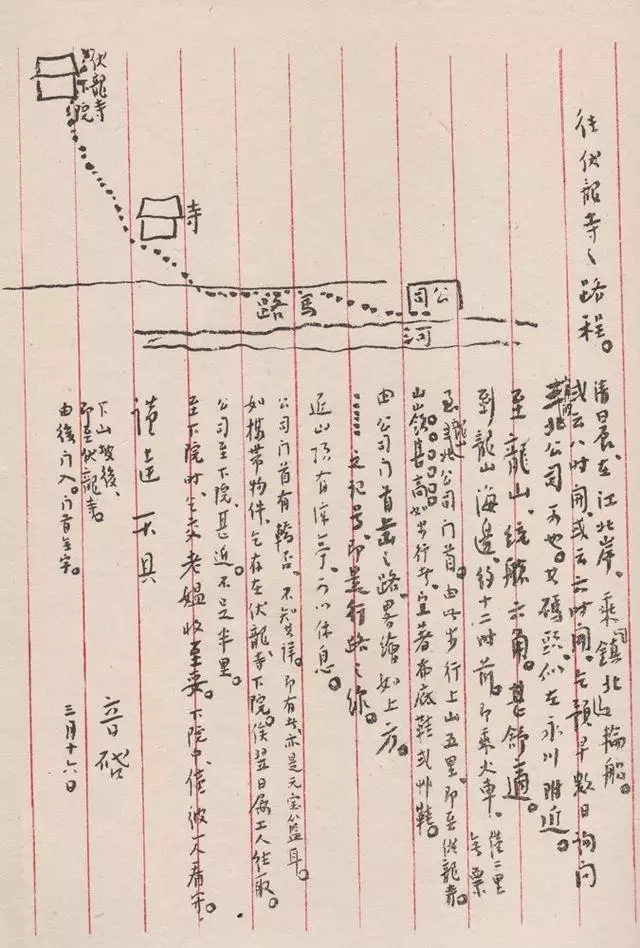 往伏龍寺之路程。
清日晨、在江北岸、乘鎮北公司輪船。
或云八時開、或云六時開、乞預早數日詢問
北公司可也。其碼頭、似在永川附近。
至龍山、統艙六角。甚舒適。
到龍山海邊、約十二时前。即乘火車。僅二里
無票
至龍山公司門首。由此步行上山五里、即至伏龍寺。
山嶺甚高。如步行者、宜著布底鞋或艸鞋。
由公司门首上山之路、畧繪如上方。
……之记号、即是行路之線。
近山頂有涼亭、可以休息。
公司门首有轎否、不知其詳。即有者、亦是元宝籃耳。
如携帶物件、乞存在伏龍寺下院。俟翌日屬工人往取。
公司至下院、甚近。不足半里。
至下院时、乞交老媪收至妥。下院中、僅彼一人看守。
謹達不具
音啓
三月十六日
下山坡後、
即至伏龍寺。
由後门入。门首無字。
公司
河
馬路
寺
伏龍寺
下院